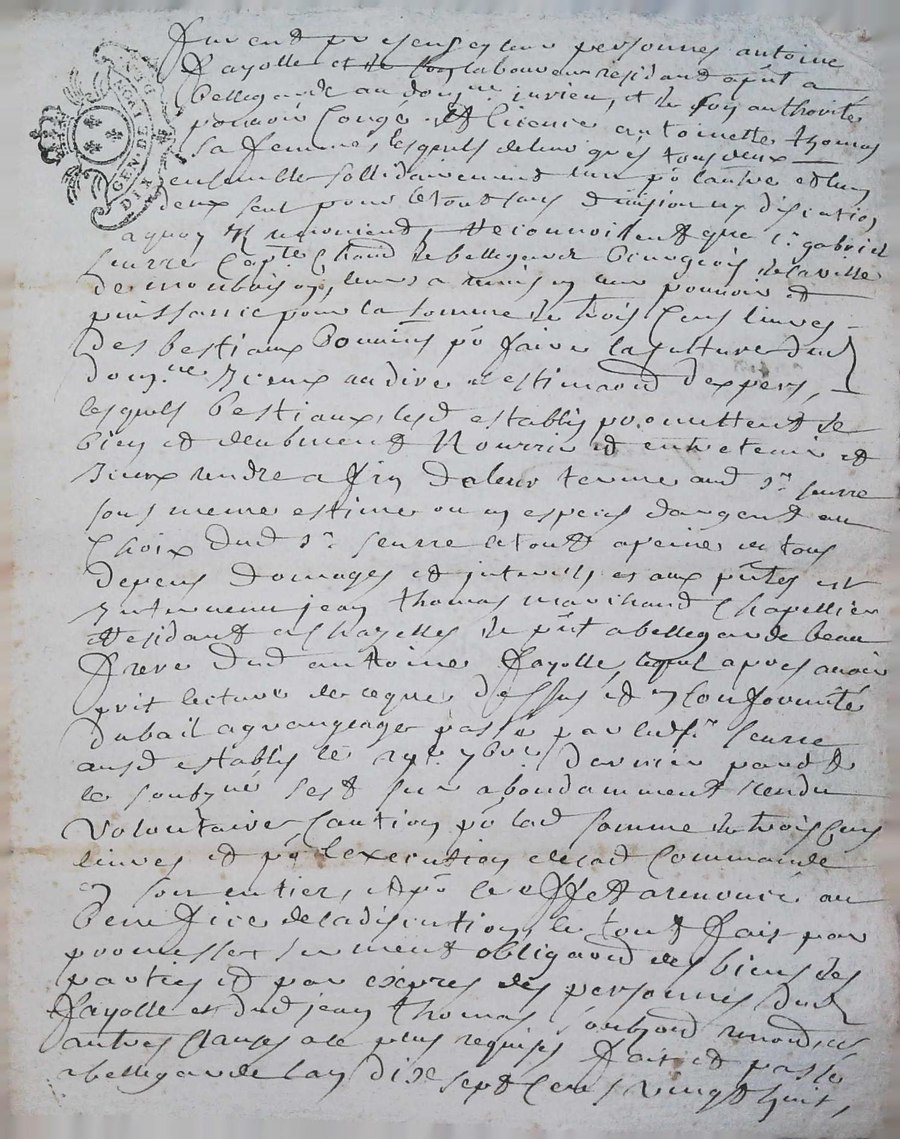 GEN. DE
DIX
furent presens en leur personnes antoine
fayolle et laboureur residand apnt a
bellegarde au domne jurieu, et de son authorité
pouvoir Congé et licence antoinette thomas
sa femme, lesquels de leur gres tous deux
ensemble sollidairement lun po lautre et lun
deux seul pour le tout sans division ny discution
a quoy Renoncient, Reconnoissent que sr gabriel
seurre Capte Chand de bellegarde Bourgeois de la ville
de monbrison, leur a remis en leur pouvoir et
puissance pour la somme de trois Cens livres
des bestiaux Bouvins po faire la culture dud
domne Jceux au dire et estimaon d'expers,
lesquels bestiaux, lesd establis promettent de
bien et deubment Nourrir et entretenir et
Jceux rendre a fin de leur terme aud sr seurre
sous meme estime ou en especes dargent au
Choix dud sr seurre le tout a peine de tous
depens domages et interests, et aux pntes est
Intervenu jean thomas marchand Chapellier
Residant a Chazelles de pnt a bellegarde beau
frere dud antoine fayolle lequel apres avoir
prit lecture de ce que dessus et en Conformité
du bail a grangeage passé par led sr seurre
ausd establis le 7bre dernier pardt
le soubzné sest sur abondamment rendu
Volontaire Caution po lad somme de trois Cens
livres et po lexecution de lad Commande
en son entier, et po ce effet a renoncé au
Benefice de la discution, le tout fait par
promesse serment obligaon des biens des
parties et par expres des personnes dud
fayolle et dud jean thomas soubzon renonson
autres Clauses a ce plus requises fait et passé
a bellegarde lan dixe sept Cens vingt huit,